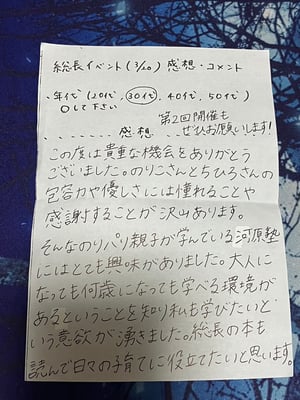 総長イベント(3/20)感想・コメント
年代(20代、30代、40代、50代)
○して下さい
第2回開催も
ぜひお願いします!
感想
この度は貴重な機会をありがとう
ございました。のりこさんとちひろさんの
包容力や優しさには憧れることや
感謝することが沢山あります。
そんなのりパリ親子が学んでいる河原塾
にはとても興味がありました。大人に
なっても何歳になっても学べる環境が
あるということを知り私も学びたいと
いう意欲が湧きました。総長の本も
読んで日々の子育てに役立てたいと思います。